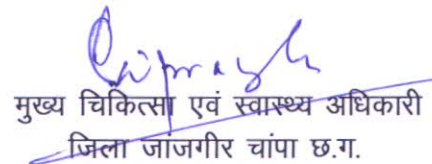 मुख्य चिकित्सा एवं स्वास्थ्य अधिकारी
जिला जांजगीर चांपा छ.ग.